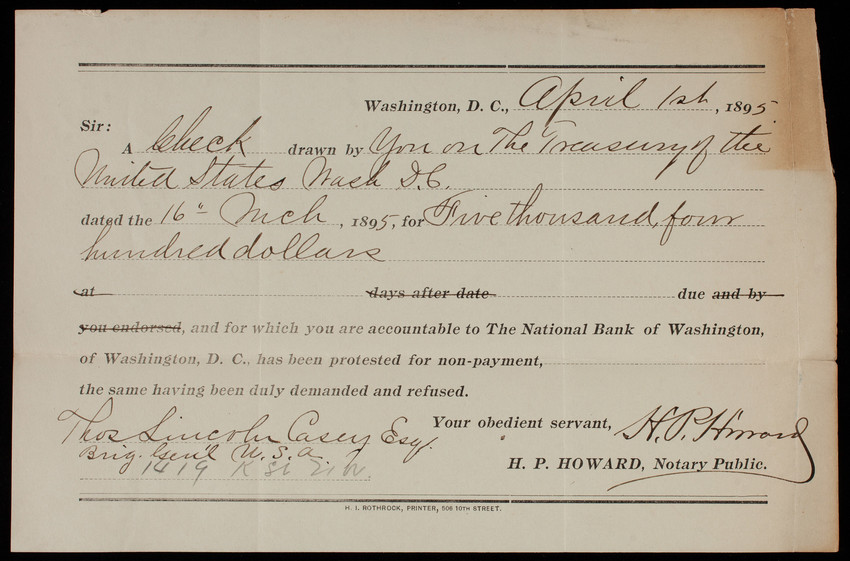 Washington, D. C., April 1st, 1895
Sir:
A Check drawn by You on The Treasury of the
United States Wash D.C.
dated the 16" Mch, 1895, for Five thousand, four
hundred dollars
at days after date due and by
you endorsed, and for which you are accountable to The National Bank of Washington,
of Washington, D. C., has been protested for non-payment,
the same having been duly demanded and refused.
Thos Lincoln Casey Esq. Your obedient servant, H. P. Howard
Brig. Gen'l U.S.A.
1419 K St N.W. H. P. HOWARD, Notary Public.
H. I. ROTHROCK, PRINTER, 508 10TH STREET.